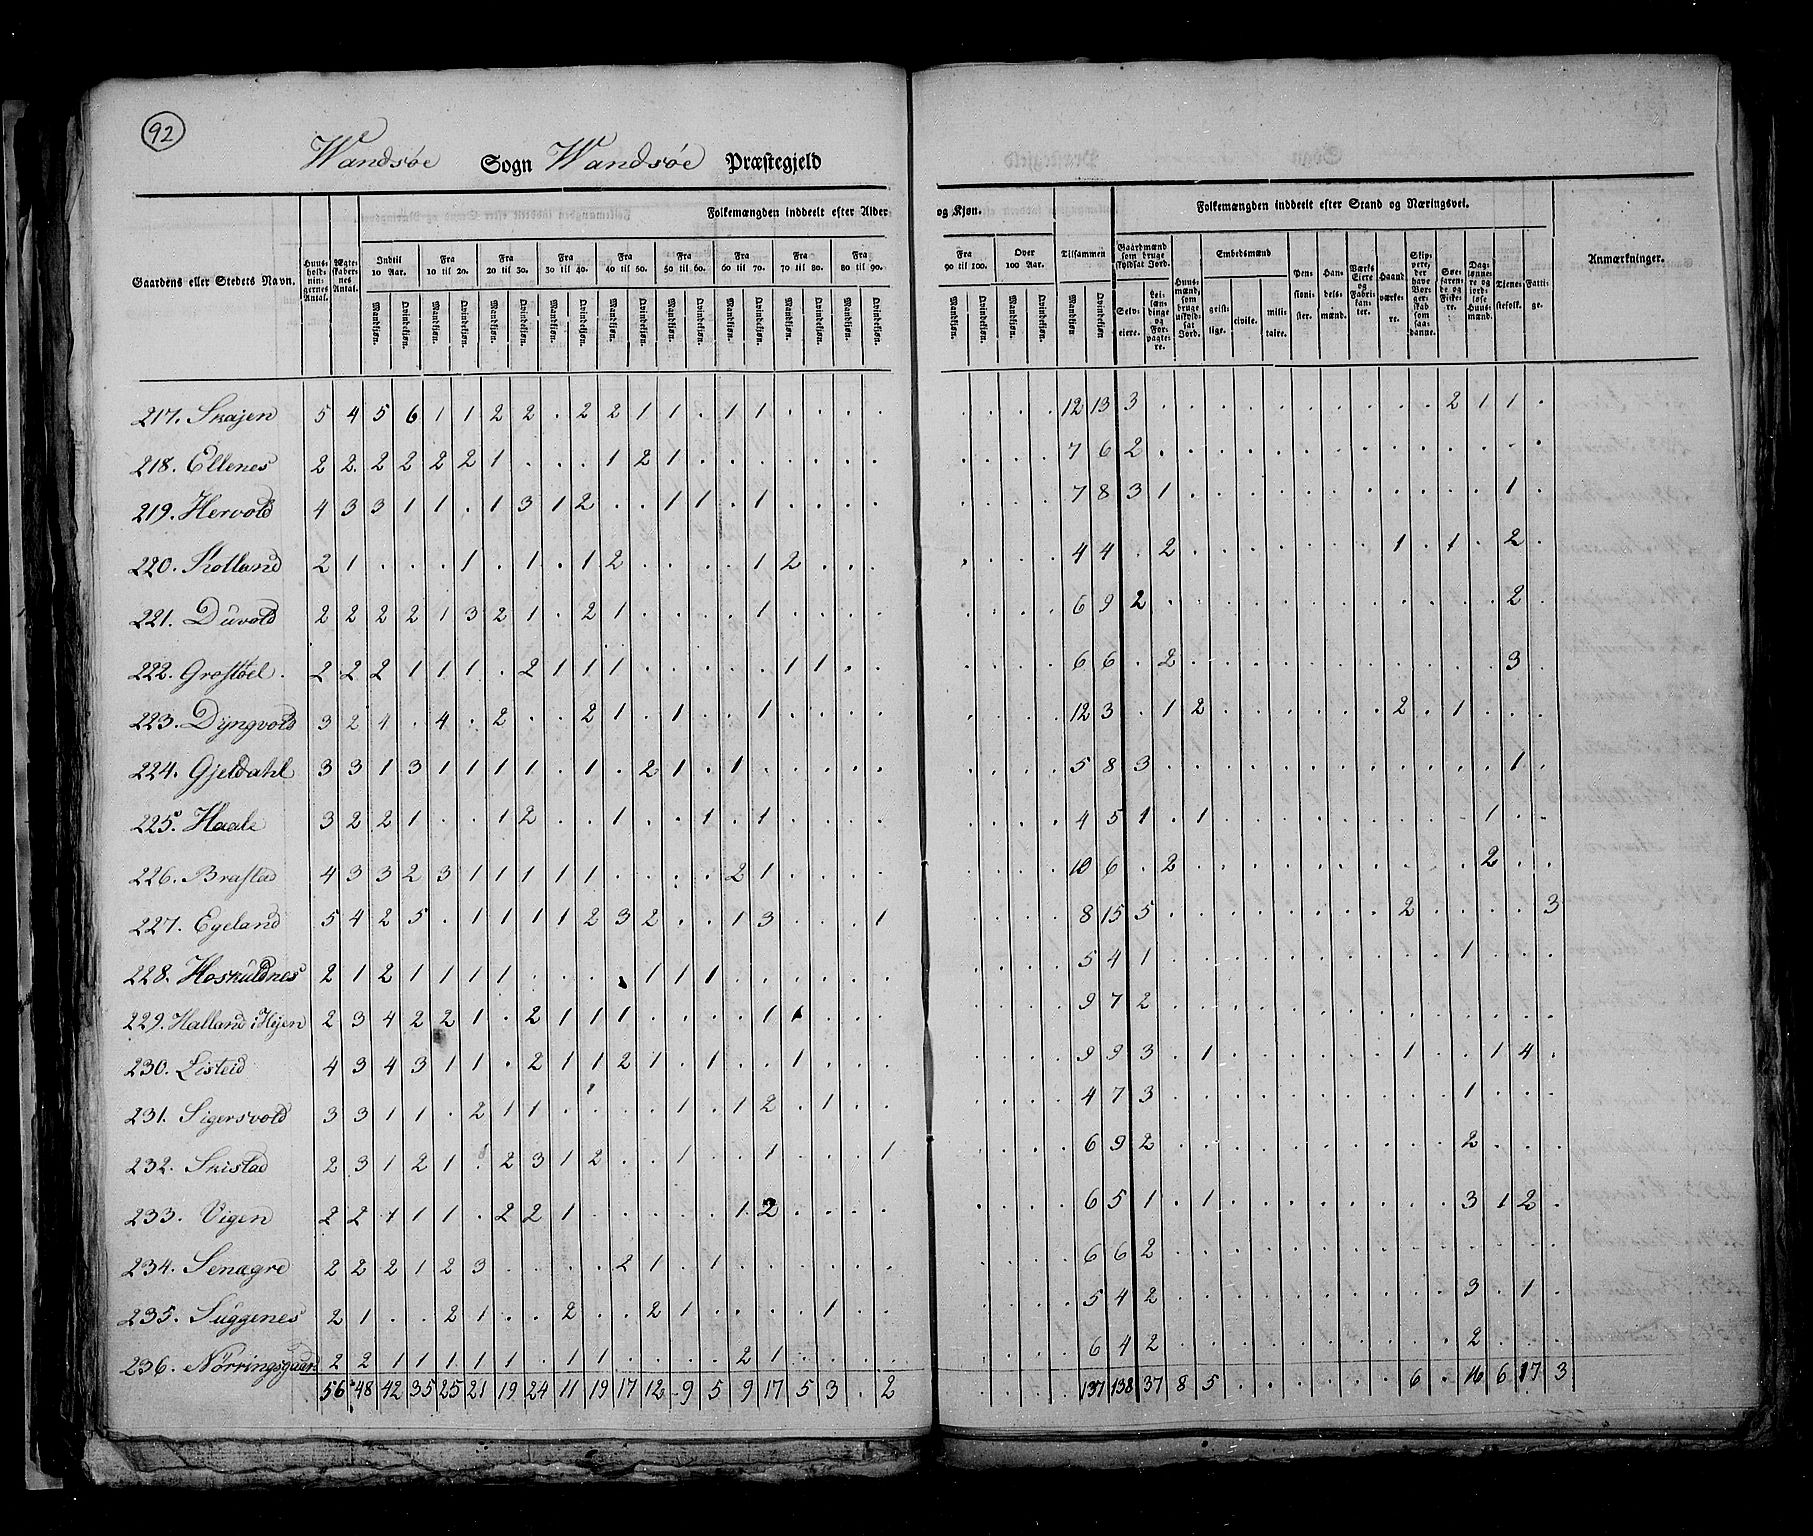 92
Wandsøe Sogn Wandsøe Præstegjeld
Folkemængden inddeelt efter Alder og Kjøn. Folkemængden inddeelt efter Stand og Næringsvei.
Gaardens eller Stedets Navn. Huusholdningernes Antal. Ægteskabernes Antal. Indtil 10 Aar. Fra 10 til 20. Fra 20 til 30. Fra 30 til 40. Fra 40 til 50. Fra 50 til 60. Fra 60 til 70. Fra 70 til 80. Fra 80 til 90. Fra 90 til 100. Over 100 Aar. Tilsammen Gaardmænd som bruge skyldsat Jord. Huusmænd, som bruge uskyldsat Jord. Embedsmænd Pensionister. Handelsmænd. Værks Eiere og Fabrikanter. Haandværkere. Skippere, der have Borgerskab som saadanne. Søefarende og Fiskere. Dagslønnere og jordløse Huusmænd. Tjenestefolk. Fattige. Anmærkninger.
Mandkjøn. Qvindekjøn. Mandkjøn. Qvindekjøn. Mandkjøn. Qvindekjøn. Mandkjøn. Qvindekjøn. Mandkjøn. Qvindekjøn. Mandkjøn. Qvindekjøn. Mandkjøn. Qvindekjøn. Mandkjøn. Qvindekjøn. Mandkjøn. Qvindekjøn. Mandkjøn. Qvindekjøn. Mandkjøn. Qvindekjøn. Mandkjøn Qvindekjøn. Selveiere. Leilændinge og Forpagtere. geistlige. civile. militaire.
217. Skajen 5 4 5 6 1 1 2 2 . 2 2 1 1 . 1 1 . . . . . . . . 12 13 3 . . . . . . . . . . 2 1 1 .
218. Ellenes 2 2 2 2 2 2 1 . . . 1 2 1 . . . . . . . . . . . 7 6 2 . . . . . . . . . . . . . .
219. Hervold 4 3 3 1 1 1 . 1 3 1 2 . . 1 1 . 1 . . . . . . . 7 8 3 1 . . . . . . . . . . . 1 .
220. Skolland 2 1 . . . 1 . 1 . 1 2 . . . . 1 2 . . . . . . . 4 4 . 2 . . . . . . . 1 . 1 . 2 .
221. Duvold 2 2 2 2 1 3 2 1 . 2 1 . . . . 1 . . . . . . . . 6 9 2 . . . . . . . . . . . . 2 .
222. Grostøel . 2 2 2 1 1 1 . 2 1 1 1 . . . . . 1 1 . . . . . . 6 6 . 2 . . . . . . . . . . . 3 .
223. Dyngvold 3 2 4 . 4 . 2 . . 2 1 . 1 . . 1 . . . . . . . . 12 3 . 1 2 . . . . . . 2 . 1 . . .
224. Gjeldahl 3 3 1 3 1 1 1 1 . 1 . 2 1 . 1 . . . . . . . . . 5 8 3 . . . . . . . . . . . . 1 .
225. Haale 3 2 2 1 . . 1 2 . . 1 . . 1 . 1 . . . . . . . . 4 5 1 . 1 . . . . . . . . . 1 . .
226. Brastad 4 3 3 2 3 1 1 1 1 1 . . . . 2 1 . . . . . . . . 10 6 . 2 . . . . . . . . . . 2 . .
227. Egeland 5 4 2 5 . 1 1 1 1 2 3 2 . . 1 3 . . . 1 . . . . 8 15 5 . . . . . . . . 2 . . . . 3
228. Hoskuldnes 2 1 2 1 1 1 1 . . . . 1 1 1 . . . . . . . . . . 5 4 1 . . . . . . . . . . 1 . . .
229. Halland i Hejen 2 3 4 2 2 1 . 2 1 1 1 . . . . 1 1 . . . . . . . 9 7 2 . . . . . . . . . . . . . .
230. Listeid 4 3 4 3 1 1 . 2 1 1 2 1 . 1 . . 1 . . . . . . . 9 9 3 . 1 . . . . . . 1 . . 1 4 .
231. Sigersvold 3 3 1 1 . 2 1 1 . . . . 1 . 1 2 . 1 . . . . . . 4 7 3 . . . . . . . . . . 1 . . .
232. Skistad 2 3 1 2 1 . 2 3 1 2 . . 1 . . 1 . . . 1 . . . . 6 9 2 . . . . . . . . . . 2 . . .
233. Vigen 2 2 1 1 1 . 2 2 1 . . . . . 1 2 . . . . . . . . 6 5 1 . 1 . . . . . . . . 3 1 2 .
234. Senagre 2 2 2 1 2 3 . . . . 2 1 . 1 . . . . . . . . . . 6 6 2 . . . . . . . . . . . . . .
235. Suggenes 2 1 . . 2 1 . . 2 . . 2 1 . . . . 1 . . . . . . 5 4 2 . . . . . . . . . . 3 . 1 .
236. Nørringsgaard 2 2 1 1 1 1 1 . 1 1 . . . . 2 1 . . . . . . . . 6 4 2 . . . . . . . . . . 2 . . .
56 48 42 35 25 21 19 24 11 19 17 12 9 5 9 17 5 3 . 2 . . . . 137 138 37 8 5 . . . . . . 6 . 16 6 17 3